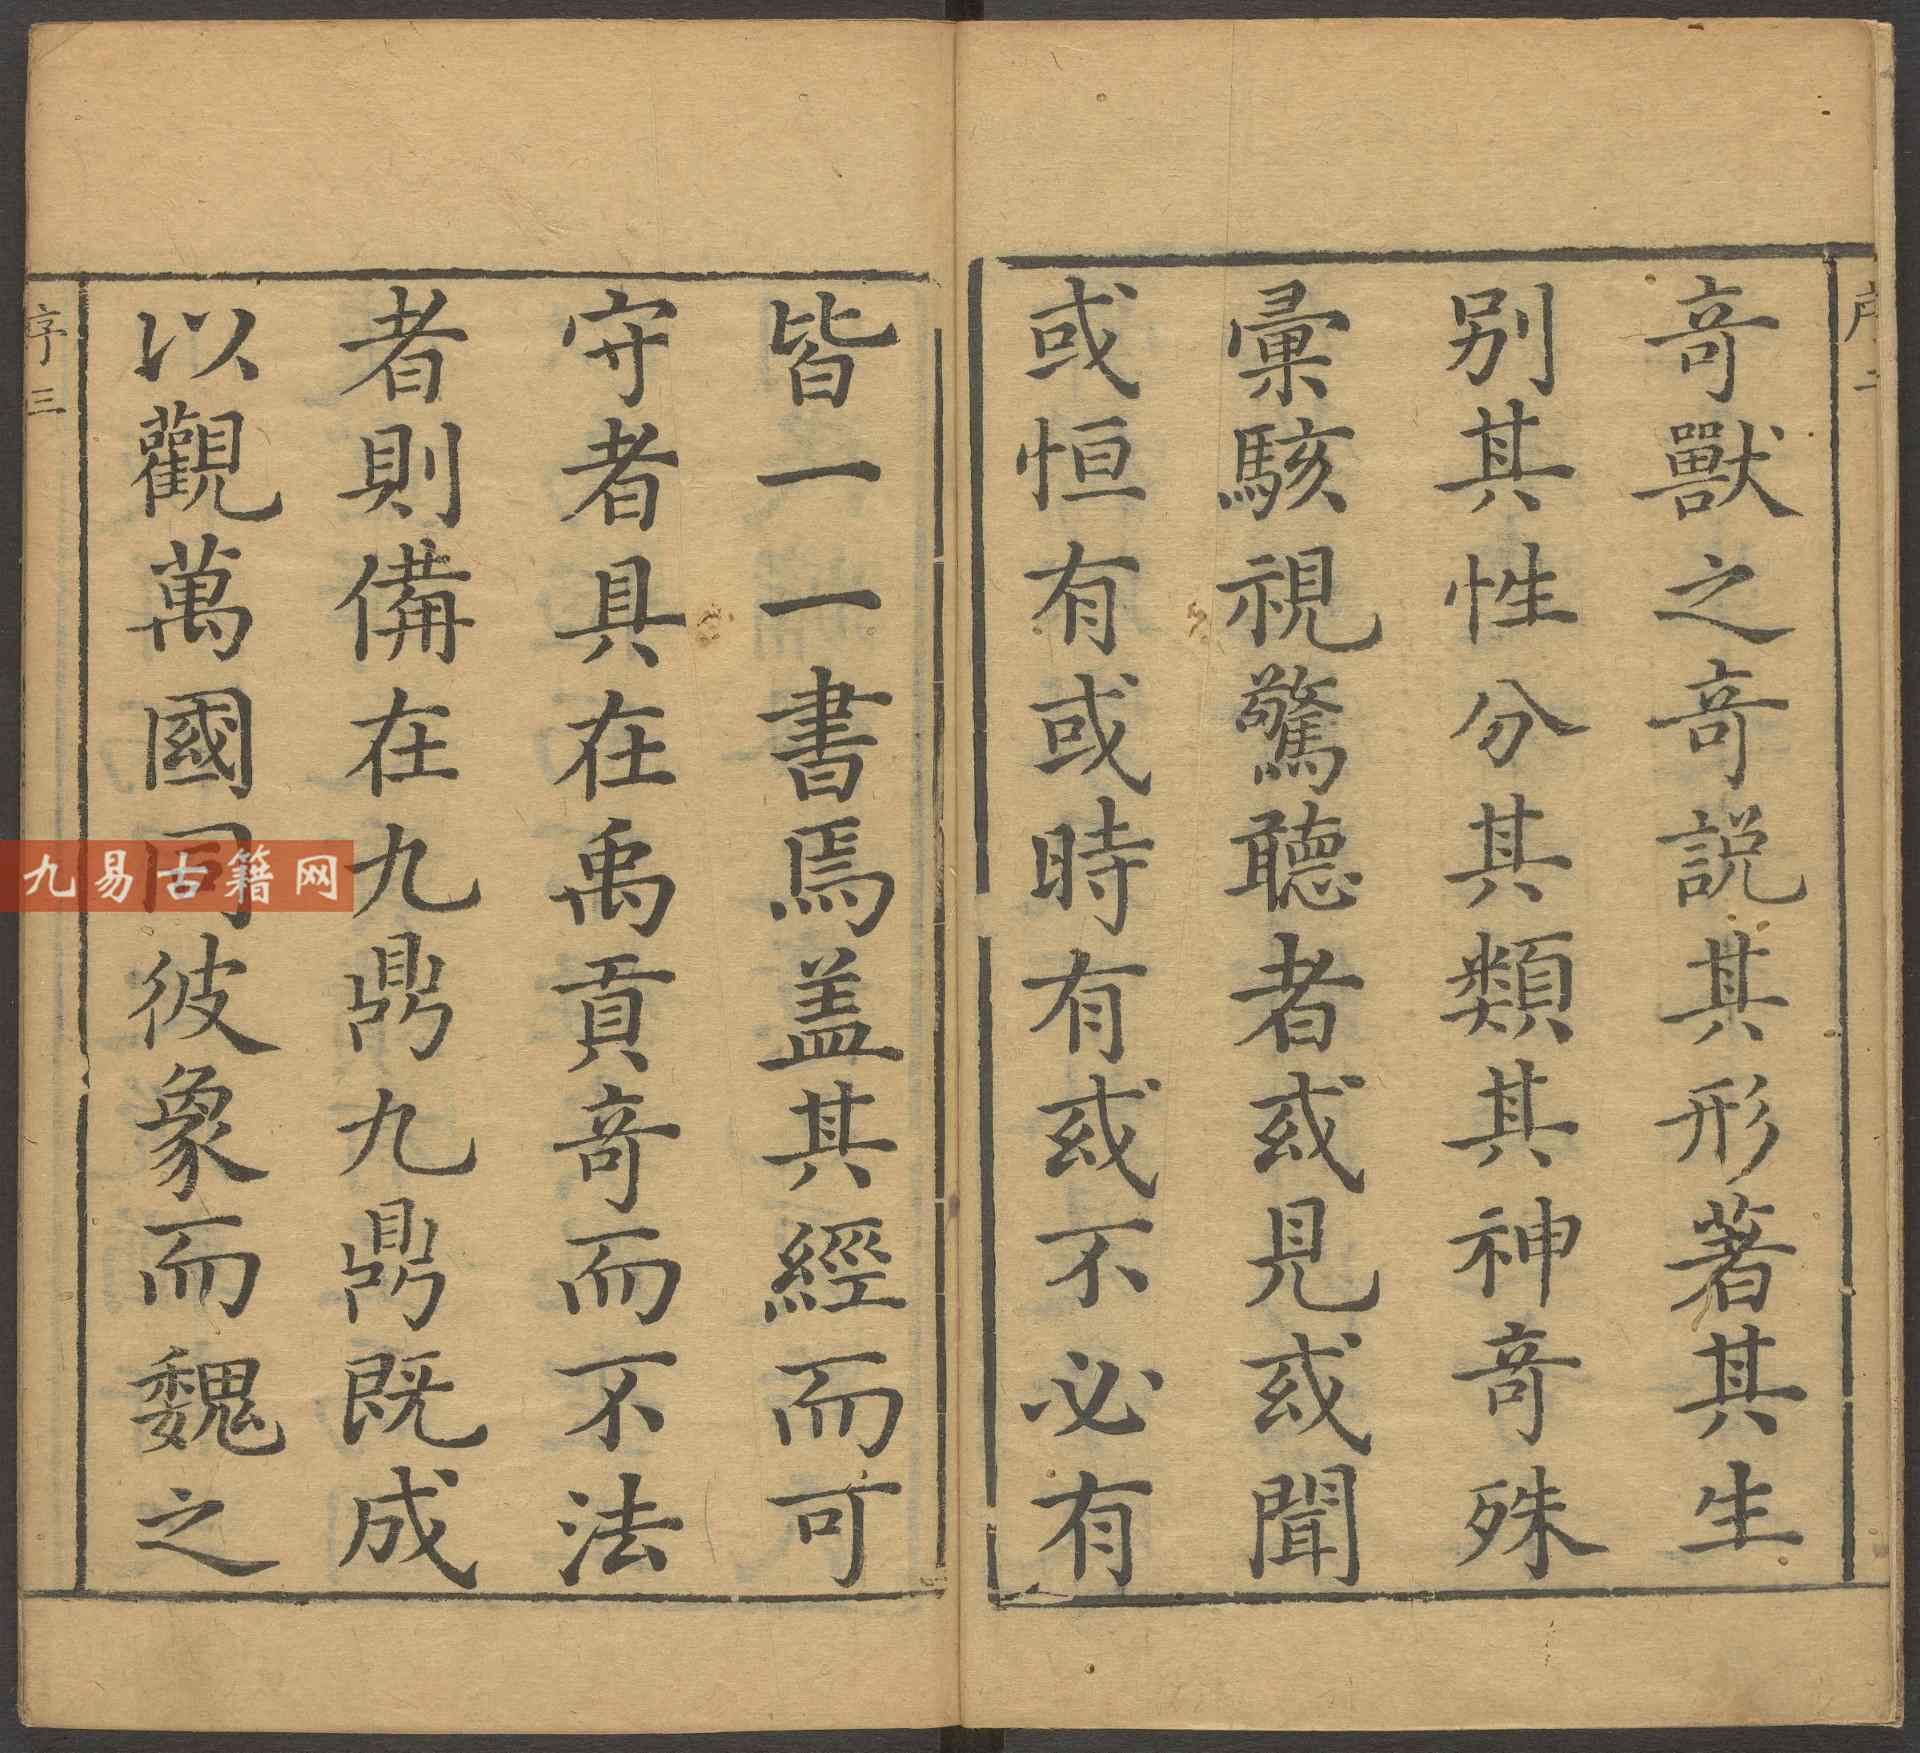 序二
奇獸之奇説其形著其生
别其性分其類其神奇殊
彙駭視驚聽者或見或聞
或恒有或時有或不必有
皆一一書焉盖其經而可
守者具在禹貢奇而不法
者則備在九鼎九鼎既成
以觀萬國同彼象而魏之
序三
九易古籍网